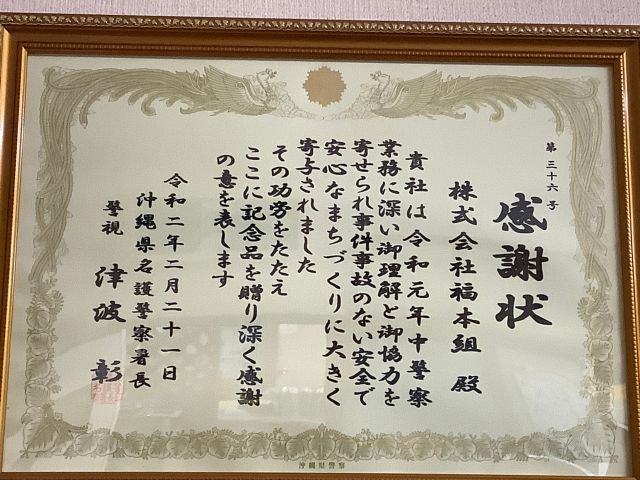 第三十六号
感謝状
株式会社福本組 殿
貴社は令和元年中警察
業務に深い御理解と御協力を
寄せられ事件事故のない安全で
安心なまちづくりに大きく
寄与されました
その功労をたたえ
ここに記念品を贈り深く感謝
の意を表します
令和二年二月二十一日
沖縄県名護警察署長
警視 津波 彰
沖縄県警察